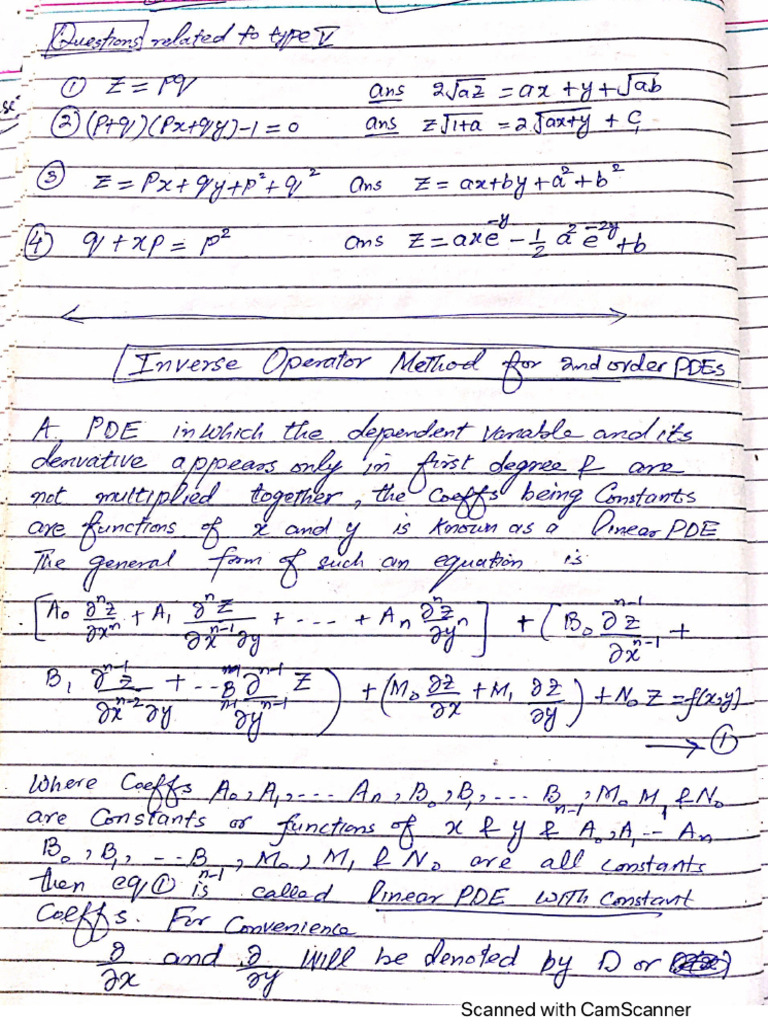 Questions related to type V
① z = pq ans 2√az = ax + y + √ab
② (p+q)(px+qy)-1=0 ans z√1+a = 2√ax+y + C₁
③ z = px + qy + p² + q² Ans z = ax+by+a²+b²
④ q + xp = p² ans z = axe^-y - 1/2 a² e^-2y + b
Inverse Operator Method for 2nd order PDEs
A PDE in which the dependent variable and its
derivative appears only in first degree & are
not multiplied together, the Coeffs being Constants
are functions of x and y is known as a linear PDE
The general form of such an equation is
[A₀ ∂ⁿz/∂xⁿ + A₁ ∂ⁿz/∂xⁿ⁻¹∂y + .... + Aₙ ∂ⁿz/∂yⁿ] + (B₀ ∂ⁿ⁻¹z/∂xⁿ⁻¹ +
B₁ ∂ⁿ⁻¹z/∂xⁿ⁻²∂y + .. Bₙ₋₁ ∂ⁿ⁻¹z/∂yⁿ⁻¹) + (M₀ ∂z/∂x + M₁ ∂z/∂y) + N₀ z = f(x,y)
→ ①
Where Coeffs A₀, A₁, .... Aₙ, B₀, B₁, ... Bₙ₋₁, M₀ M₁ & N₀
are Constants or functions of x & y & A₀, A₁ -- Aₙ
B₀, B₁, -- Bₙ₋₁, M₀, M₁ & N₀ are all constants
then eq ① is called linear PDE with Constant
Coeffs. For Convenience
∂/∂x and ∂/∂y will be denoted by D or
Scanned with CamScanner